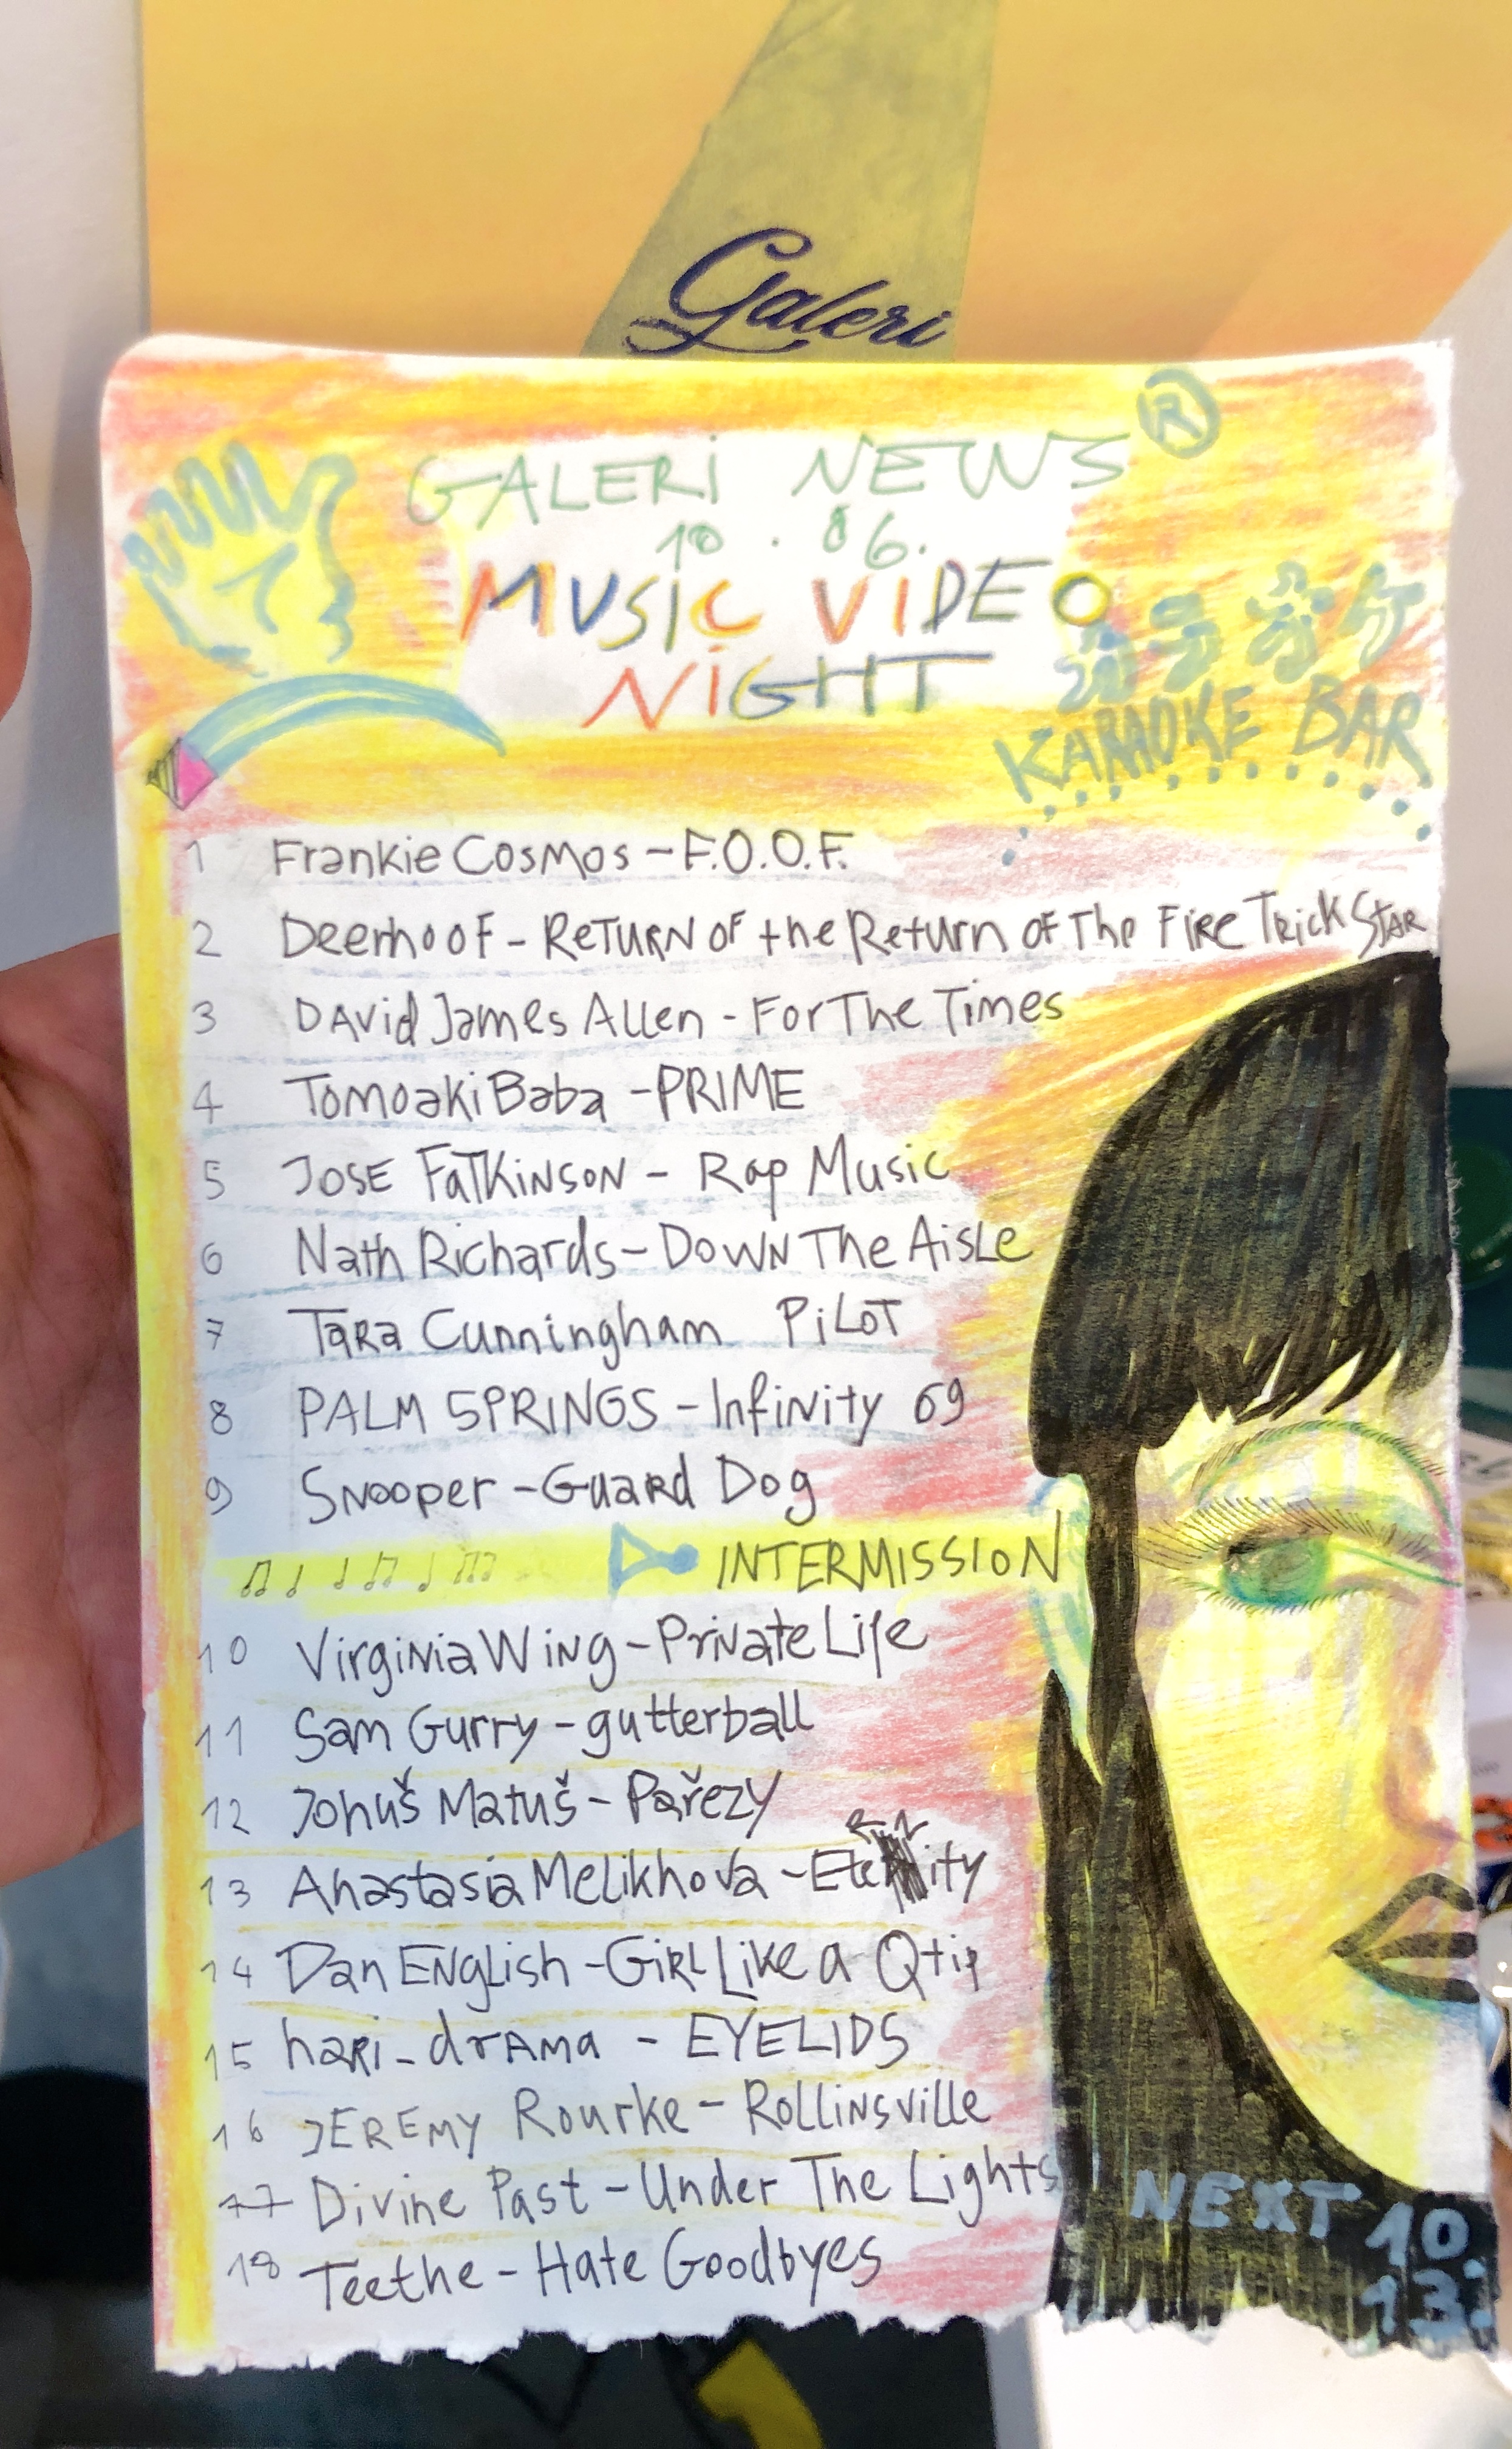 Galeri
GALERI NEWS ®
10.06.
MUSIC VIDEO
NIGHT
KARAOKE BAR
1 Frankie Cosmos – F.O.O.F.
2 Deerhoof – Return of the Return of The Fire Trick Star
3 David James Allen – For The Times
4 Tomoaki Baba – PRIME
5 Jose Fatkinson – Rap Music
6 Nath Richards – Down The Aisle
7 Tara Cunningham PiLOT
8 PALM SPRINGS – Infinity 69
9 Snooper – Guard Dog
INTERMISSION
10 Virginia Wing – Private Life
11 Sam Gurry – gutterball
12 Johuš Matuš – Pařezy
13 Anastasia Melikhova – Eternity
14 Dan English – Girl Like a Qtip
15 hari_drama – EYELIDS
16 JEREMY Rourke – Rollinsville
17 Divine Past – Under The Lights
18 Teethe – Hate Goodbyes
NEXT 10.
13.